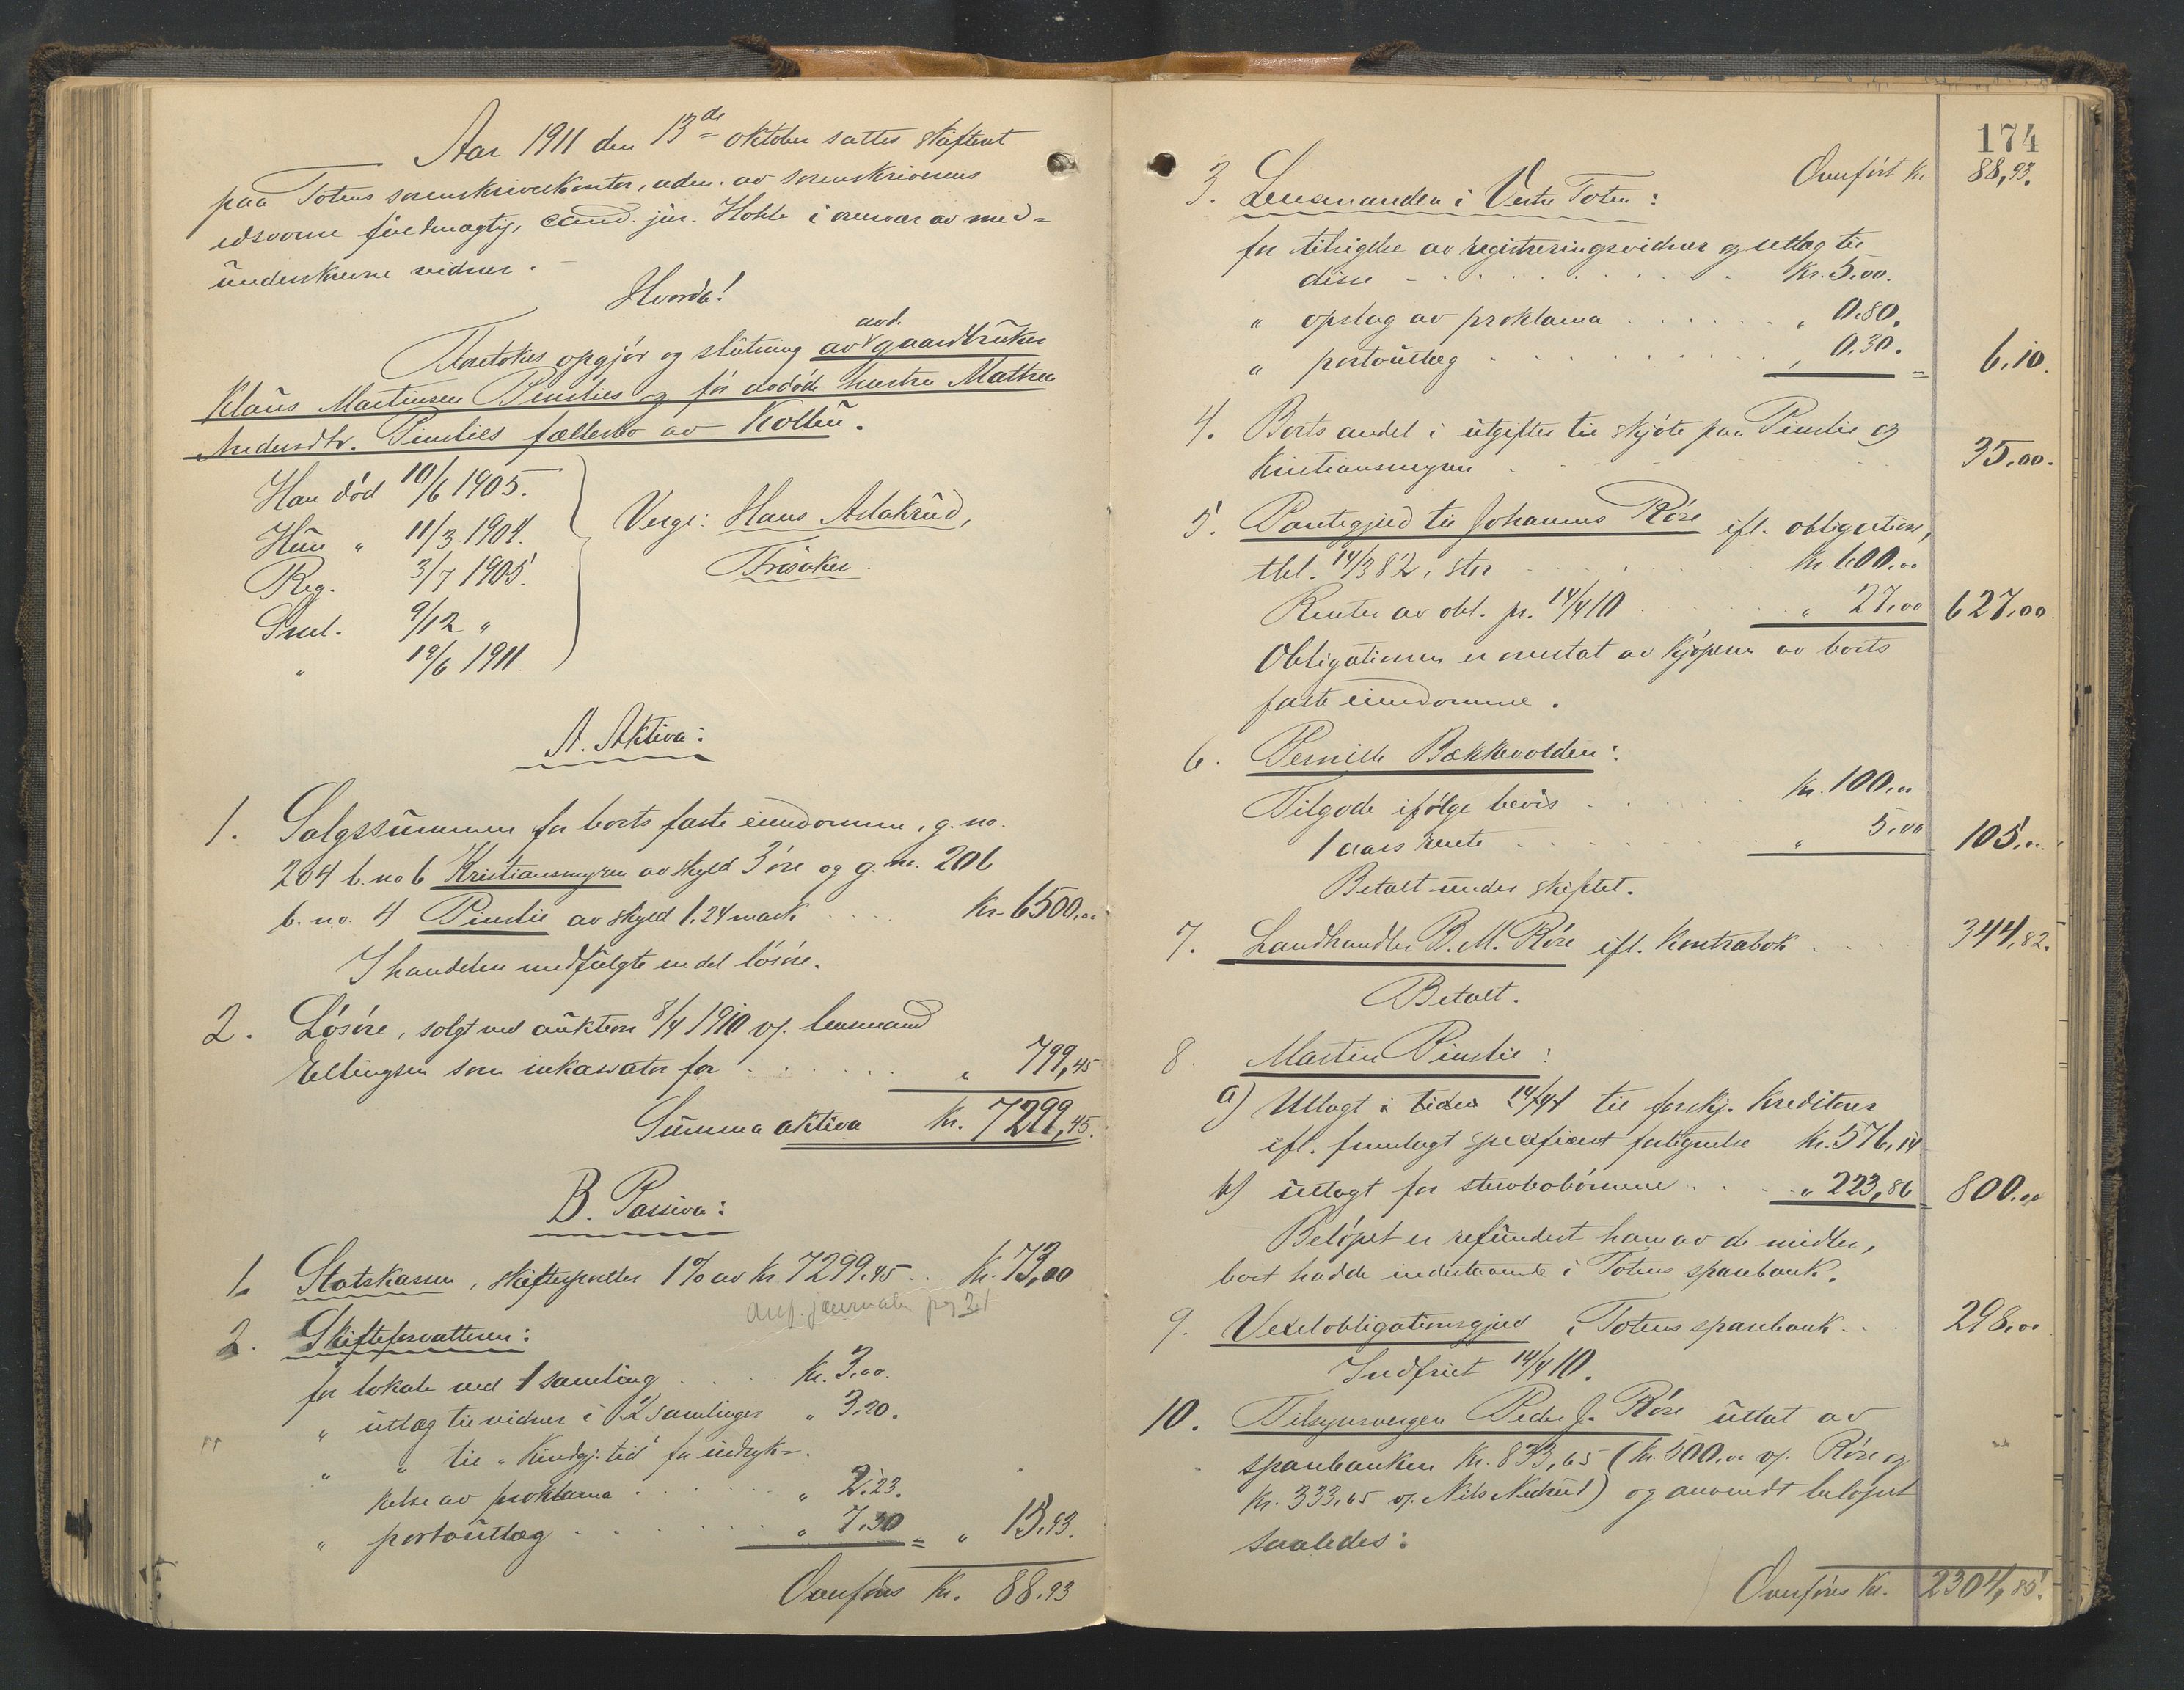 Aar 1911 den 13de oktober sattes skifteret
paa Totens sorenskriverkontor, adm. av sorenskriverens
edsvorne fuldmægtig, cand. jur. Hokle i overvær av med-
underskrevne vidner.
Hvorda!
Foretokes opgjør og slutning av avd. gaardbruker
Klaus Martinsen Pinslies og før avdøde hustru Mathea
Andersdtr. Pinslies fællesbo av Kolbu.
Han død 10/6 1905.
Hun " 11/3 1904.
Reg. 3/7 1905.
Sml. 9/12 "
" 19/6 1911.
Verge: Hans
A. Aktiva:
1. Salgssummen for boets faste eiendomme, g. no.
204 b. no 6 Kristiansmyren av skyld 3 øre og g. no. 206
b. no. 4 Pinslie av skyld 1.24 mark .... Kr. 6500,00
I handelen medfulgte en del løsøre.
2. Løsøre, solgt ved auktion 8/4 1910 v/. lensmand
Ellingsen som inkassator for ...... " 799,45
Summa aktiva Kr. 7299,45.
B. Passiva:
1. Statskassen, skifteportler 1% av Kr. 7299.45 .. Kr. 73,00
anf. journalen pag 21
2. Skifteforvalteren:
for lokale ved 1 samling .... Kr. 3,00.
" utlæg til vidner i 2 samlinger " 3,20.
" " til "Kundgj. tid" for indryk-
kelse av proklama ...... " 2.23.
" portoutlæg ...... " 7.30 = " 15.93.
Overføres Kr. 88.93
174
Overført Kr. 88,93.
3. Lensmanden i Vestre Toten:
for tilsigelse av registreringsvidner og utlæg til
disse .......... Kr. 5,00.
" opslag av proklama ...... " 0.80.
" portoutlæg .......... " 0.30. = 6,10.
4. Boets andel i utgifter til skjøte paa Pinslie og
Kristiansmyren .......... 35,00.
5. Pantegjæld til Johannes Røise ifl. obligation,
tbl. 14/3 82, stor ...... Kr. 600,00
Renter av obl. pr. 14/4 10 ...... " 27,00 627,00.
Obligationen er overtat av kjøperen av boets
faste eiendomme.
6. Pernille Bækkevolden:
Tilgode ifølge bevis ...... Kr. 100,00
1 aars rente .......... " 5,00 105,00.
Betalt under skiftet.
7. Landhandler B. M. Røise ifl. kontrabok .... 344,82.
Betalt.
8. Martin Pinslie:
a) Utlagt i tiden til forskj. kreditorer
ifl. fremlagt specificert fortegnelse Kr. 576,14
b) utlagt for stervbobørnene .... " 223,86 = 800,00
Beløpet er refundert ham av de midler,
boet hadde indestaaende i Totens sparebank.
9. Vexelobligationsgjæld i Totens sparebank... 298,00
Indfriet 14/4 10.
10. Tilsynsvergen Peder J. Røise uttat av
sparebanken Kr. 833,65 (Kr. 500,00 v/. Røise og
Kr. 333,65 v/. Nils Nedrud) og anvendt beløpet
saaledes:
Overføres Kr. 2304,85.